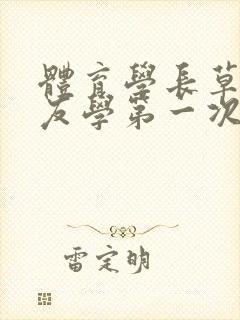 體育學長草
友學第一次
雷定明